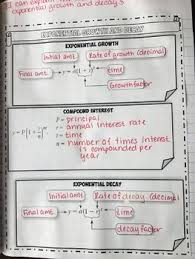 I can explain
exponential growth and decays
EXPONENTIAL GROWTH AND DECAY
EXPONENTIAL GROWTH
Initial amt Rate of growth (decimal)
Final amt time
Growth factor
COMPOUND INTEREST
P = principal
r = annual interest rate
t = time
n = number of times interest
is compounded per
year
EXPONENTIAL DECAY
Initial amt Rate of decay (decimal)
Final amt time
decay factor